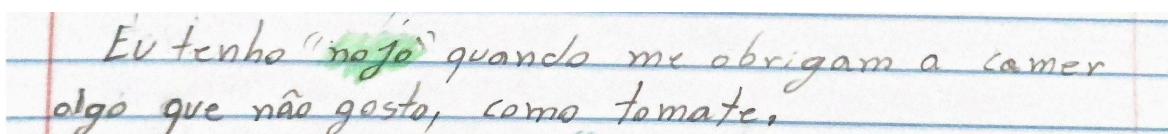 Eu tenho "nojo" quando me obrigam a comer
algo que não gosto, como tomate.